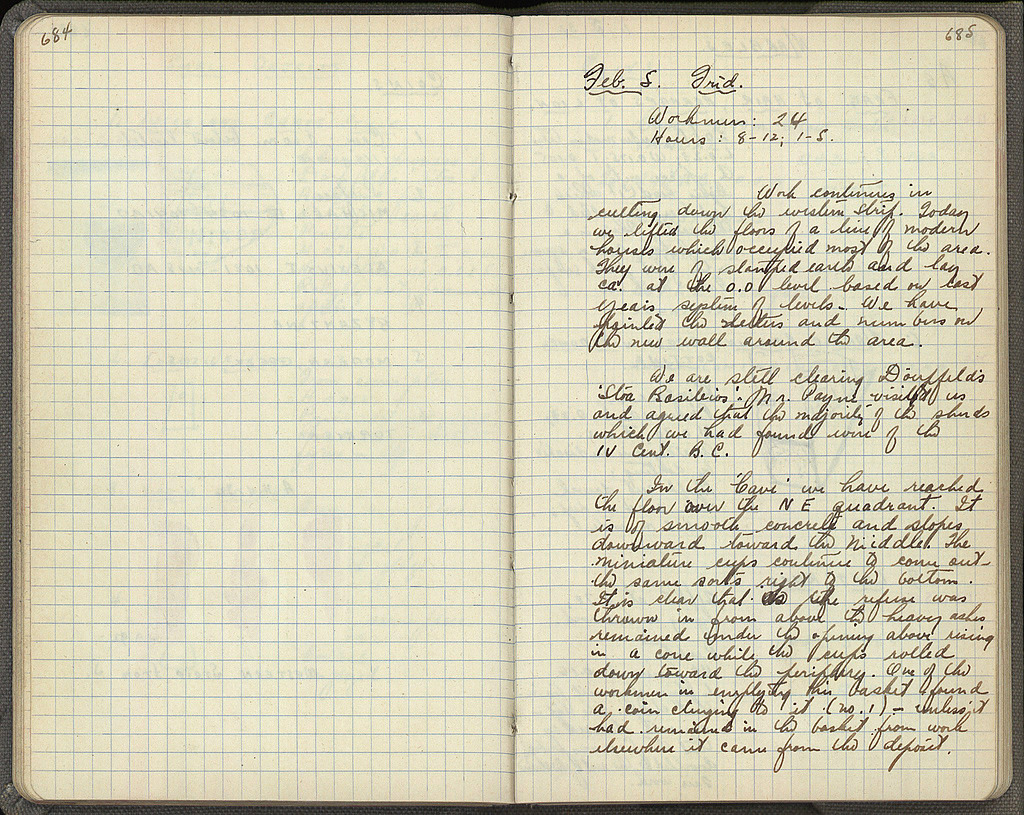 684
685
Feb. 5. Frid.
Workmen: 24
Hours: 8-12; 1-5.
Work continues in
cutting down the western strip. Today
we lifted the floors of a line of modern
houses which occupied most of the area.
They were of stamped earth and lay
ca. at the 0.0 level based on last
years system of levels. We have
painted the letters and numbers on
the new wall around the area.
We are still clearing Dörpfeld's
'Stoa Basileios'. Mr. Payne visited us
and agreed that the majority of the sherds
which we had found were of the
IV Cent. B.C.
In the 'Cave' we have reached
the floor over the NE quadrant. It
is of smooth concrete and slopes
downward toward the middle. The
miniature cups continue to come out
the same sorts right to the bottom.
It is clear that the refuse was
thrown in from above the heavy ashes
remained under the opening above rising
in a cone while the cups rolled
down toward the periphery. One of the
workmen in emptying his basket found
a coin clinging to it (no. 1) – unless it
had remained in the basket from work
elsewhere it came from the deposit.